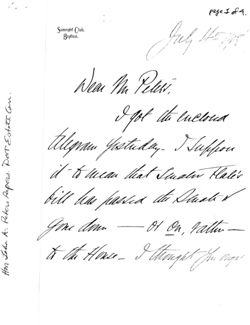 page 1 of 2
Somerset Club,
Boston.
July
Dear Mr Peters,
I got the enclosed
telegram yesterday - I suppose
it to mean that Senator Hale's
bill has passed the Senate &
gone down — or on, rather —
to the House — I thought
Hon John A. Peters Papers. Dorr Estate Corr.